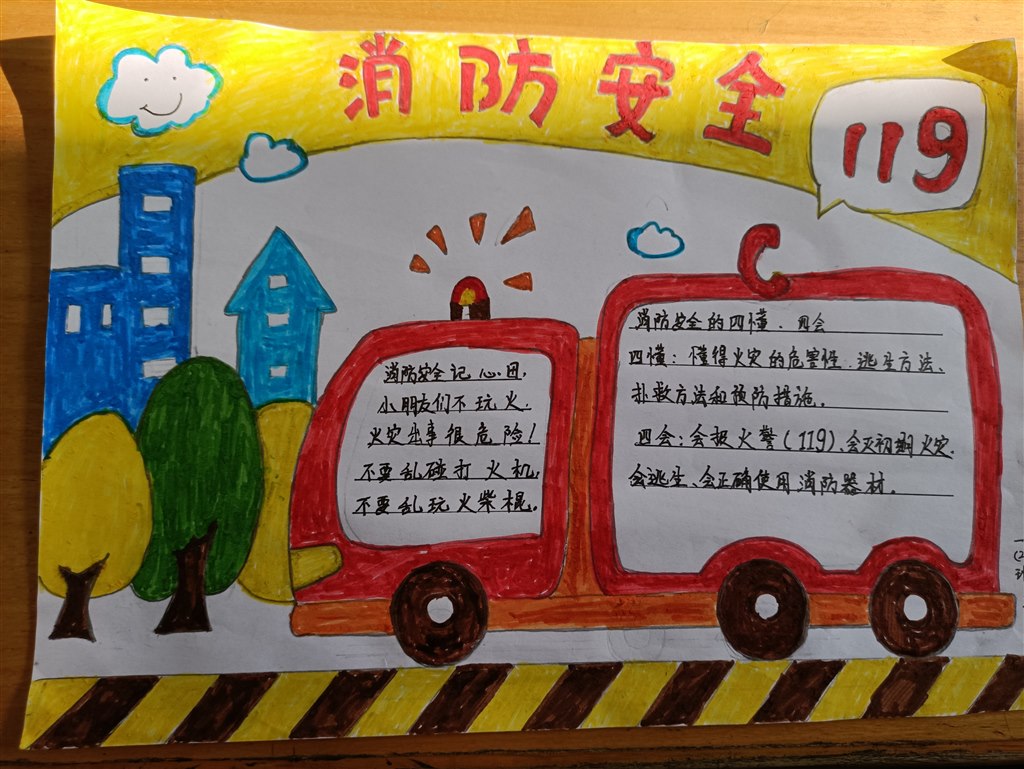 消防安全
119
消防安全记心田,
小朋友们不玩火.
火灾出事很危险!
不要乱碰打火机,
不要乱玩火柴棍。
消防安全的四懂、四会
四懂:懂得火灾的危害性、逃生方法、
扑救方法和预防措施。
四会:会报火警(119)、会灭初期火灾.
会逃生、会正确使用消防器材。
一
(2)
班